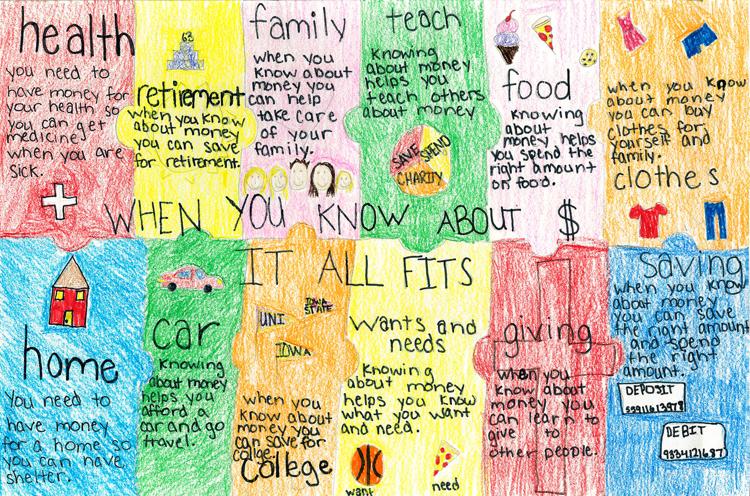 health
you need to
have money for
your health so
you can get
medicine
when you are
sick.
63
retirement
when you know
about money
you can save
for retirement.
family
when you
know about
money you
can help
take care
of your
family.
teach
knowing
about money
helps you
teach others
about money
SAVE
SPEND
CHARITY
food
knowing
about
money helps
you spend the
right amount
on food.
when you know
about money
you can buy
clothes for
yourself and
family.
clothes
WHEN YOU KNOW ABOUT $
IT ALL FITS
home
You need to
have money
for a home so
you can have
shelter.
car
knowing
about money
helps you
afford a
car and go
travel.
UNI
IOWA
STATE
IOWA
when you
know about
money you
can save for
college.
College
wants and
needs
Knowing
about money
helps you know
what you want
and need.
want
need
giving
when you
know about
money you
can learn to
give to
other people.
saving
when you know
about money
you can save
the right amount
and spend
the right
amount.
DEPOSIT
DEBIT
9834121687